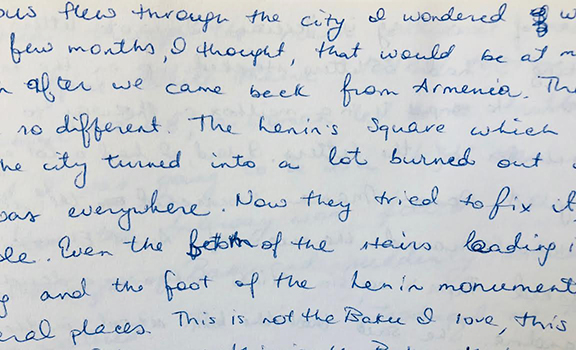 flew through the city I wondered
few months, I thought, that would be at
after we came back from Armenia.
so different. The Lenin's Square which
city turned into a lot burned out
everywhere. Now they tried to fix it
Even the bottom of the stairs leading
and the foot of the Lenin monument
places. This is not the Baku I love, this